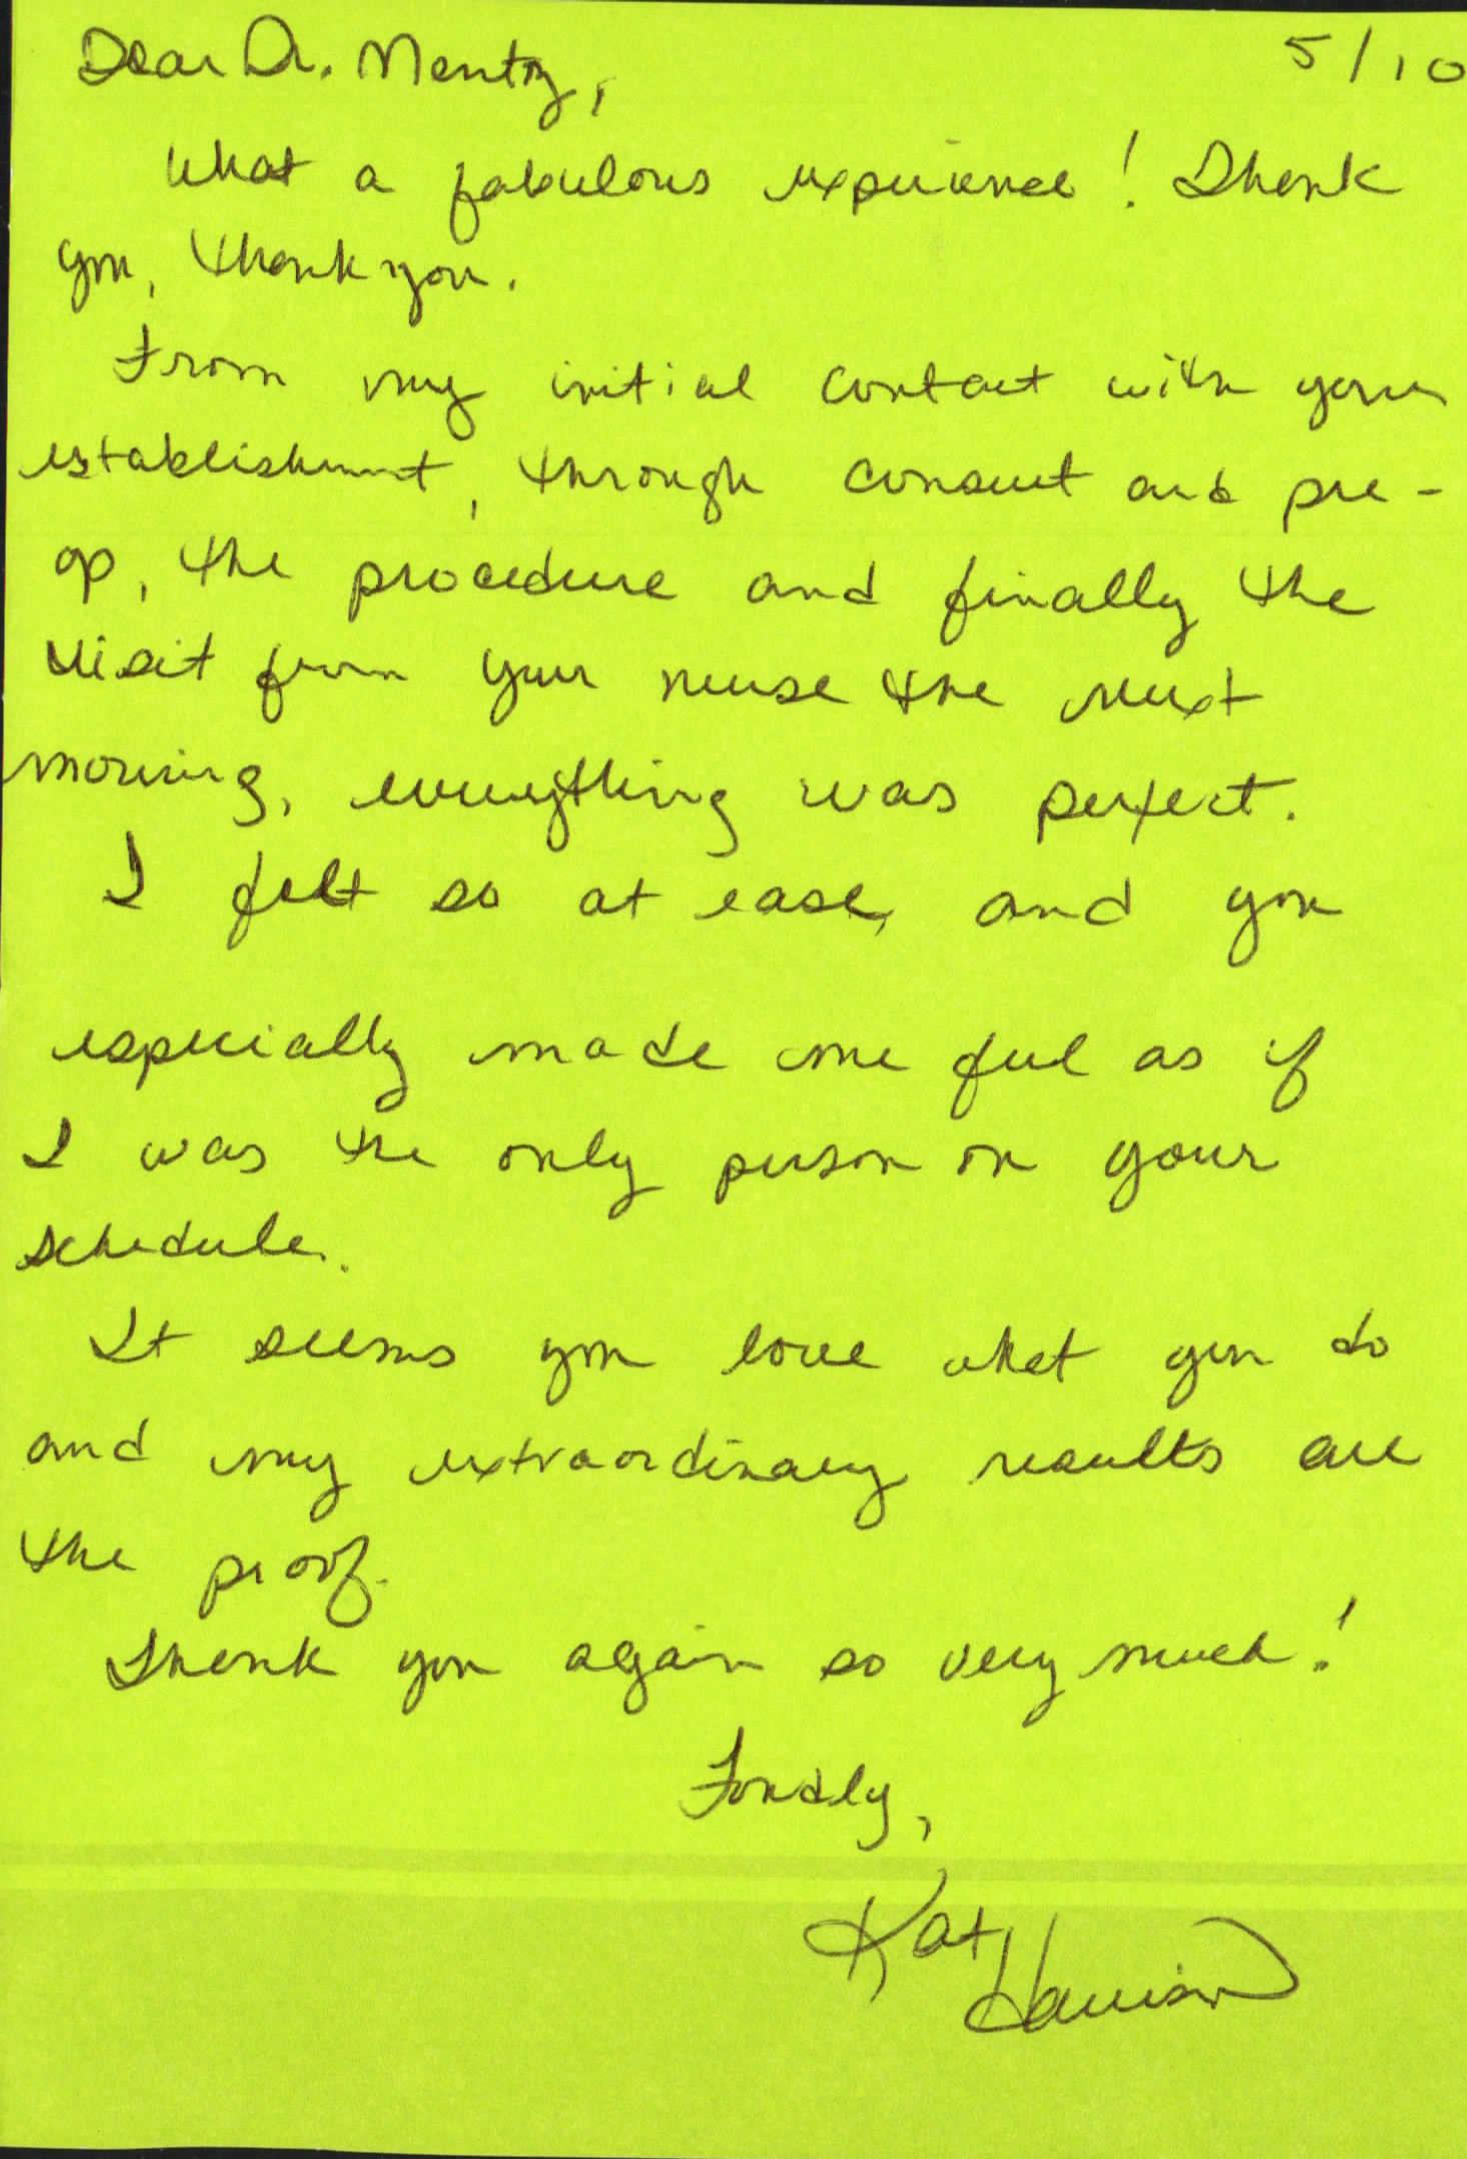 5/10
Dear Dr. Mentz,
What a fabulous experience! Thank
you, thank you.
From my initial contact with your
establishment, through consult and pre-
op, the procedure and finally the
visit from your nurse the next
morning, everything was perfect.
I felt so at ease, and you
especially made me feel as if
I was the only person on your
schedule.
It seems you love what you do
and my extraordinary results are
the proof.
Thank you again so very much!
Fondly,
Kat
Harrison